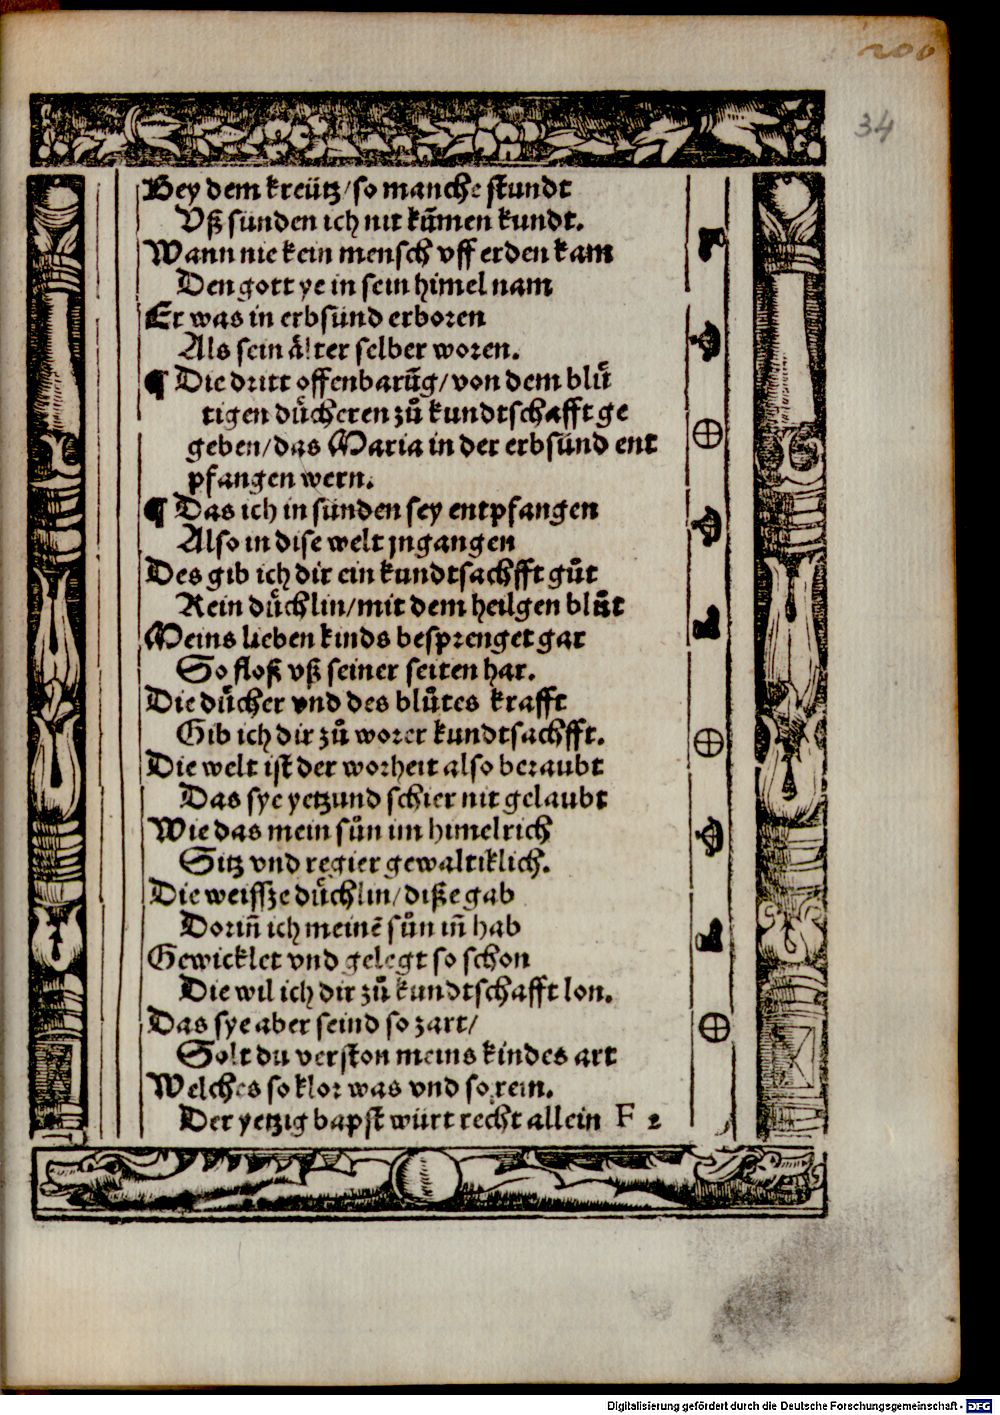 200
34
Bey dem kreütz/so manche stundt
Vß sünden ich nit kům̃en kundt.
Wann nie kein mensch vff erden kam
Den gott ye in sein himel nam
Er was in erbsünd erboren
Als sein älter selber woren.
¶ Die dritt offenbarũg/von dem blůͤ
tigen duͤcheren zů kundtschafft ge
geben/das Maria in der erbsünd ent
pfangen wern.
¶ Das ich in sünden sey entpfangen
Also in dise welt jngangen
Des gib ich dir ein kundtsachfft gůt
Rein duͤchlin/mit dem heilgen blůt
Meins lieben kinds besprenget gar
So floß vß seiner seiten har.
Die duͤcher vnd des blůtes krafft
Gib ich dir zů worer kundtsachfft.
Die welt ist der worheit also beraubt
Das sye yetzund schier nit gelaubt
Wie das mein sůn im himelrich
Sitz vnd regier gewaltiklich.
Die weissze duͤchlin/diße gab
Dorin̄ ich meinē sůn in̄ hab
Gewicklet vnd gelegt so schon
Die wil ich dir zů kundtschafft lon.
Das sye aber seind so zart/
Solt du verston meins kindes art
Welches so klor was vnd so rein.
Der yetzig bapst würt recht allein F 2
Digitalisierung gefördert durch die Deutsche Forschungsgemeinschaft - DFG